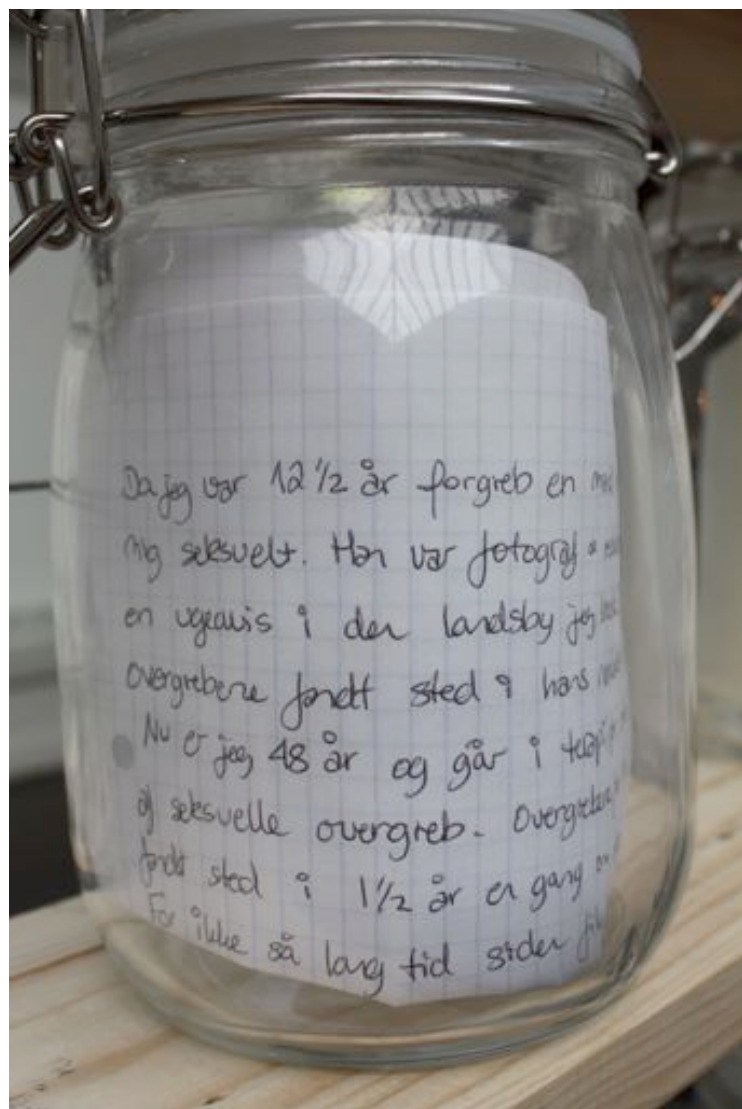 Da jeg var 12 1/2 år forgreb en
mig seksuelt. Han var fotograf
en ugeavis i den landsby jeg
overgrebene fandt sted i hans
Nu er jeg 48 år og går i terapi
af seksuelle overgreb. Overgrebene
fandt sted i 1 1/2 år en gang
For ikke så lang tid siden fik